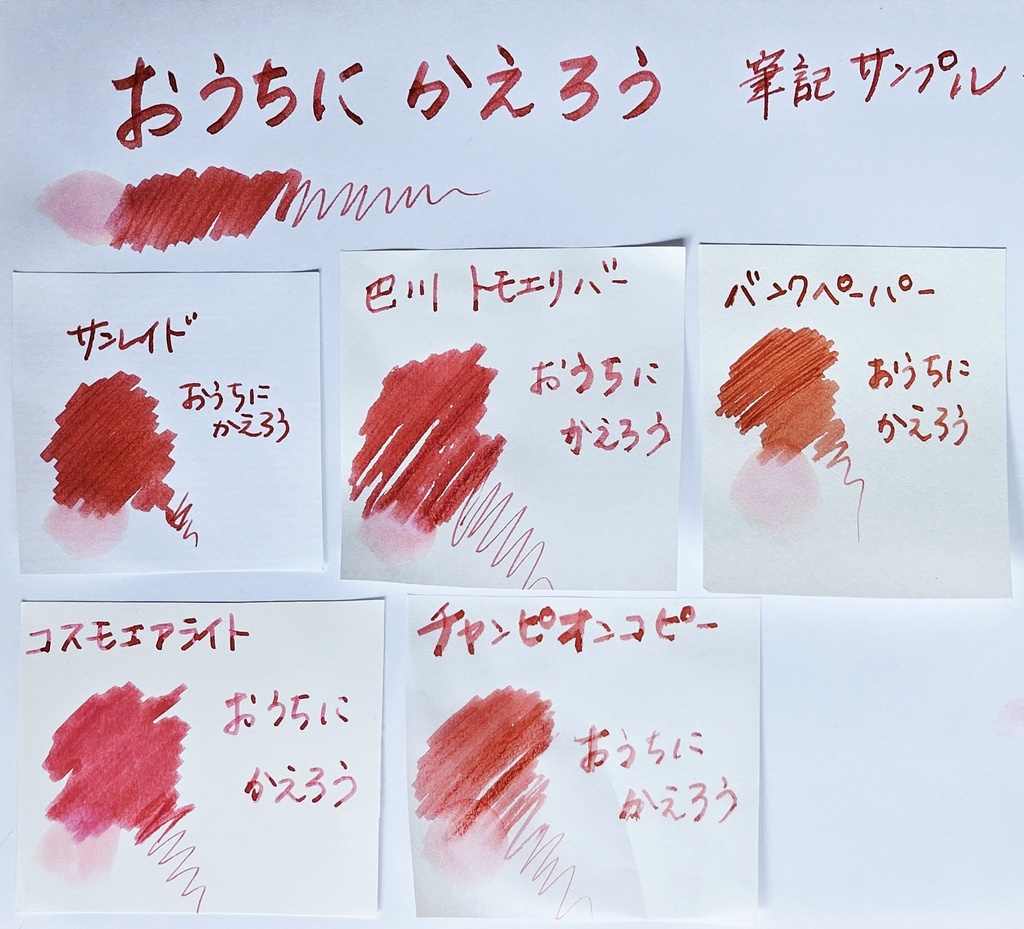 おうちに かえろう 筆記 サンプル
サンレイド
おうちに
かえろう
巴川 トモエリバー
おうちに
かえろう
バンクペーパー
おうちに
かえろう
コスモエアライト
おうちに
かえろう
チャンピオンコピー
おうちに
かえろう